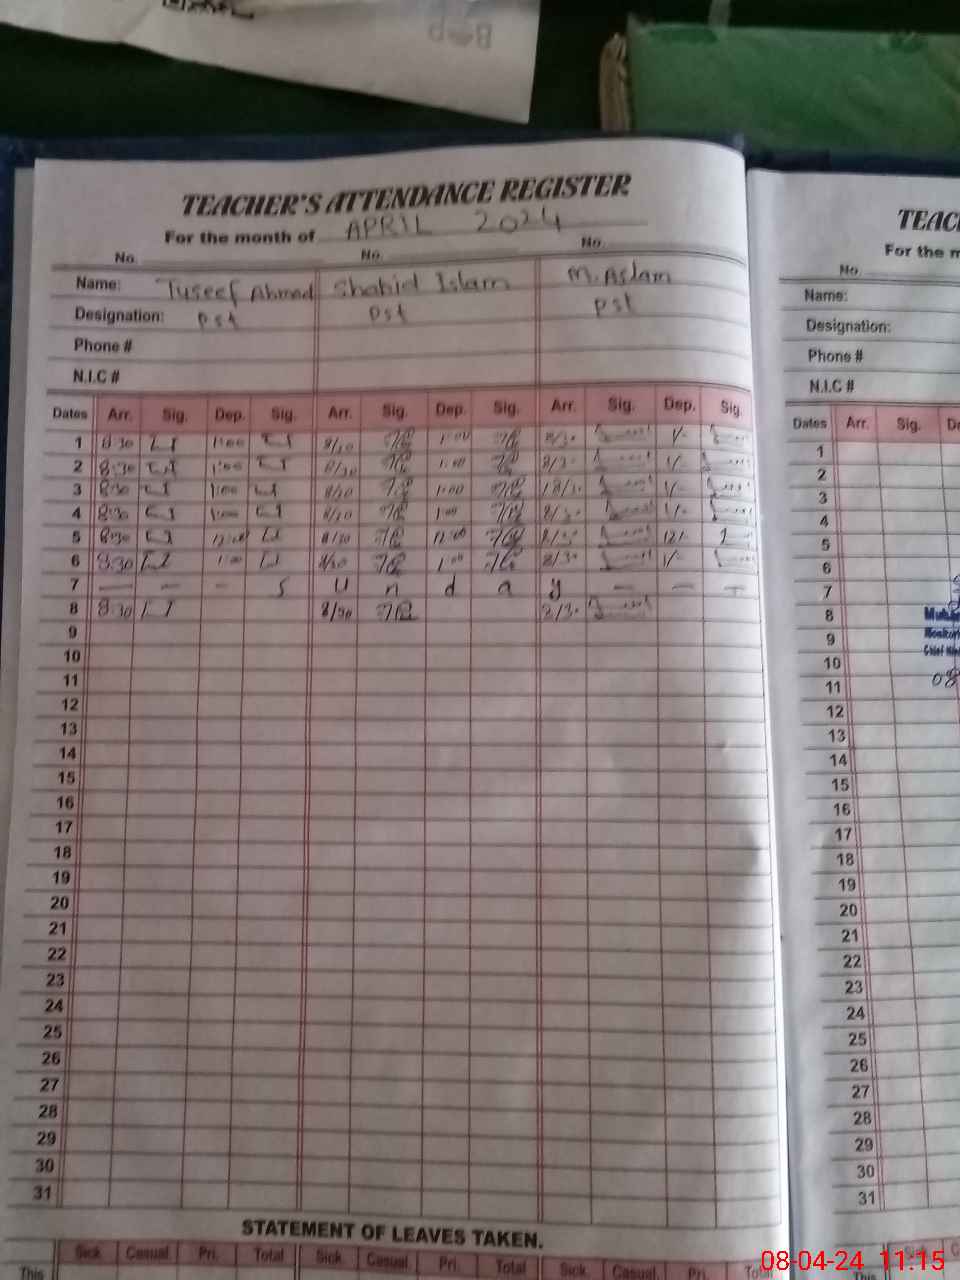 TEACHER'S ATTENDANCE REGISTER
For the month of APRIL 2024
No. No. No.
Name: Tuseef Ahmad Shahid Islam M. Aslam
Designation: Pst Pst Pst
Phone #
N.I.C #
Dates Arr. Sig. Dep. Sig. Arr. Sig. Dep. Sig. Arr. Sig. Dep. Sig.
1 8:30 1:00 8/30 1:00 8/30 1/-
2 8:30 1:00 8/30 1:00 8/30 1/-
3 8:30 1:00 8/30 1:00 8/30 1/-
4 8:30 1:00 8/30 1:00 8/30 1/-
5 8:30 12:00 8/30 12:00 8/30 12/-
6 8:30 1:00 8/30 1:00 8/30 1/-
7 — — – S u n d a y – – –
8 8:30 8/30 8/30
9
10
11
12
13
14
15
16
17
18
19
20
21
22
23
24
25
26
27
28
29
30
31
STATEMENT OF LEAVES TAKEN.
Sick Casual Pri. Total Sick Casual Pri. Total Sick Casual Pri. Total
This
TEAC
For the m
No
Name:
Designation:
Phone #
N.I.C #
Dates Arr. Sig. De
1
2
3
4
5
6
7
8
9
10
11
12
13
14
15
16
17
18
19
20
21
22
23
24
25
26
27
28
29
30
31
Sick C
This
08-04-24 11:15